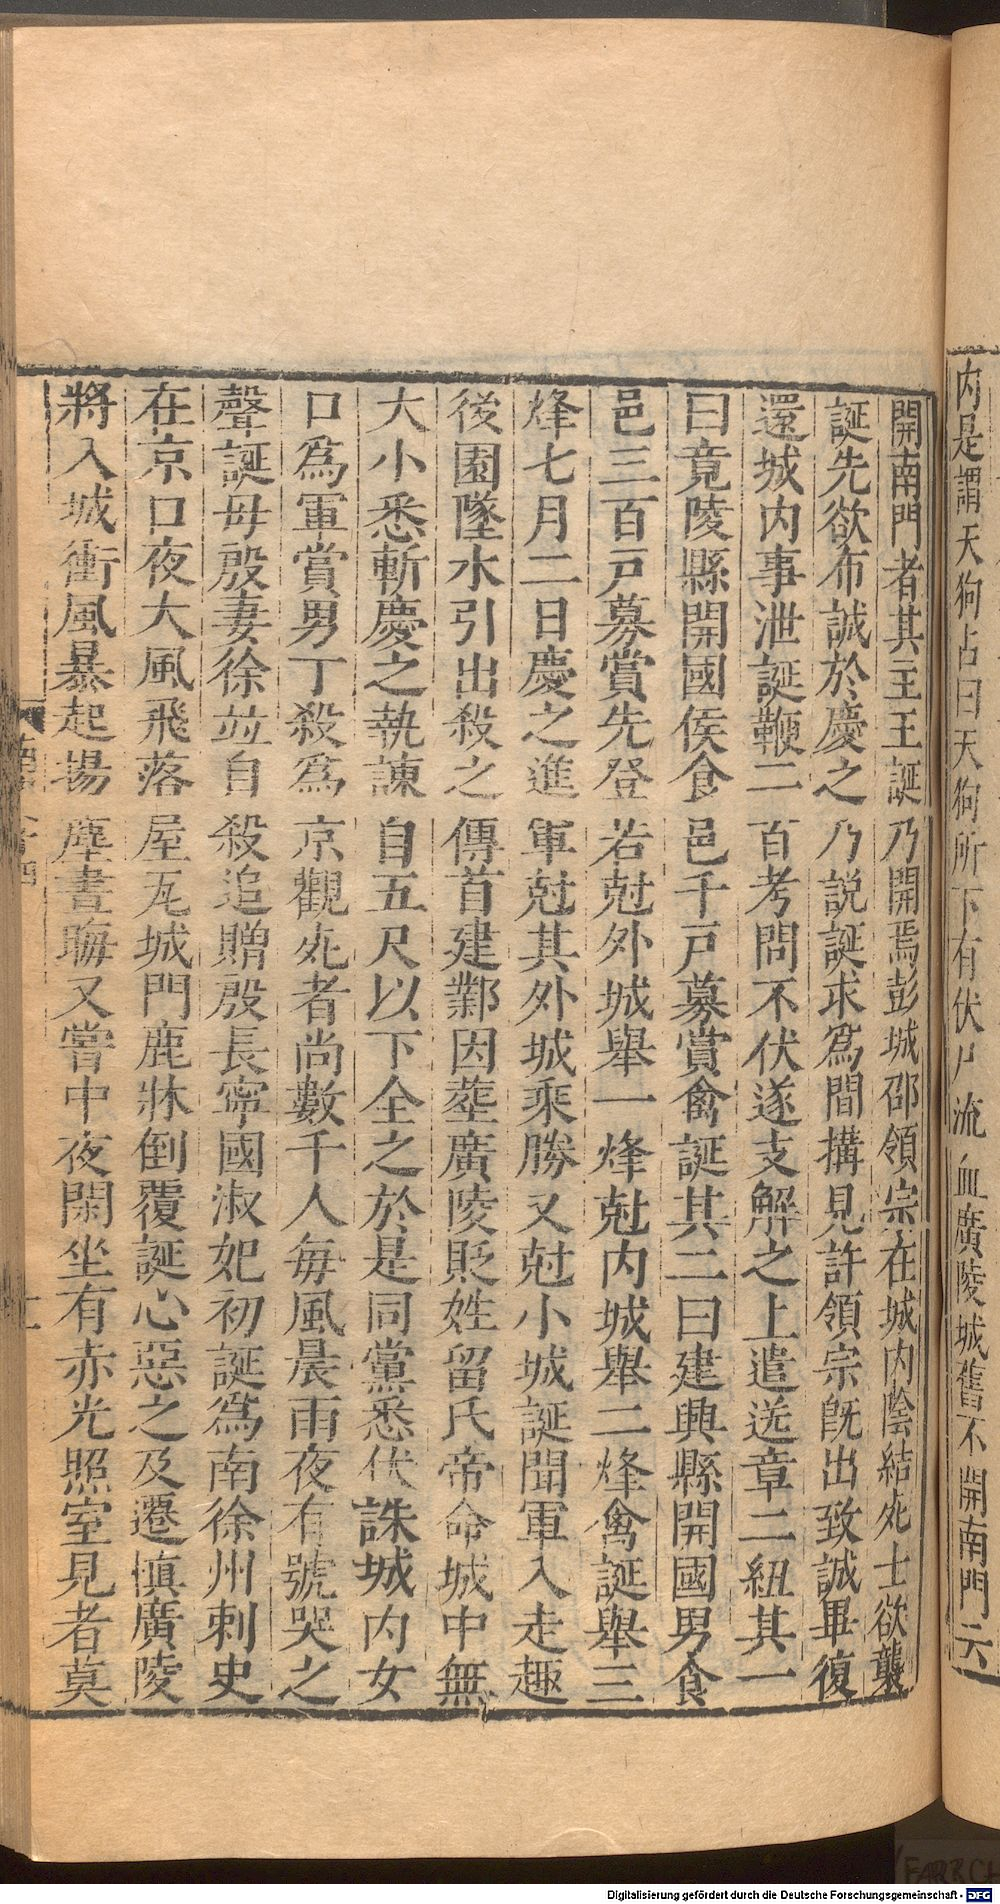 内是謂天狗占曰天狗所下有伏尸流血廣陵城舊不開南門云
開南門者其主王誕乃開焉彭城邵領宗在城内陰結死士欲襲
誕先欲布誠於慶之乃說誕求爲間搆見許領宗旣出致誠畢復
還城内事泄誕鞭二百考問不伏遂支解之上遣送章二紐其一
曰竟陵縣開國侯食邑千戸募賞禽誕其二曰建興縣開國男食
邑三百戸募賞先登若尅外城舉一烽尅内城舉二烽禽誕舉三
烽七月二日慶之進軍尅其外城乘勝又尅小城誕聞軍入走趣
後園墜水引出殺之傳首建鄴因葬廣陵貶姓留氏帝命城中無
大小悉斬慶之執諫自五尺以下全之於是同黨悉伏誅城内女
口爲軍賞男丁殺爲京觀死者尚數千人每風晨雨夜有號哭之
聲誕母殷妻徐並自殺追贈殷長寧國淑妃初誕爲南徐州刺史
在京口夜大風飛落屋瓦城門鹿牀倒覆誕心惡之及遷慎廣陵
將入城衝風暴起揚塵晝晦又嘗中夜閑坐有赤光照室見者莫
Digitalisierung gefördert durch die Deutsche Forschungsgemeinschaft - DFG